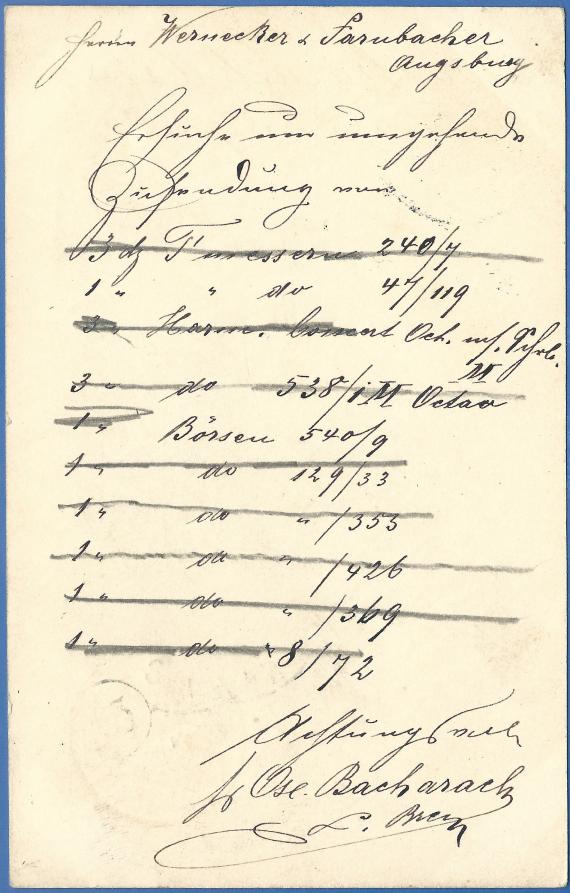 Herren Wernecker & Farnbacher
Augsburg
Ersuche um umgehende
Zusendung von
3 dz T'messern 240/7
1 " " do 47/119
3 " Harm. Concert Oct. m/. Schl.
M
3 " do 538/1 M Octav
1 " Börsen 540/9
1 " do 129/33
1 " do " /353
1 " do " /426
1 " do " /369
1 " do "8/72
Achtungsvoll
Bacharach
L.